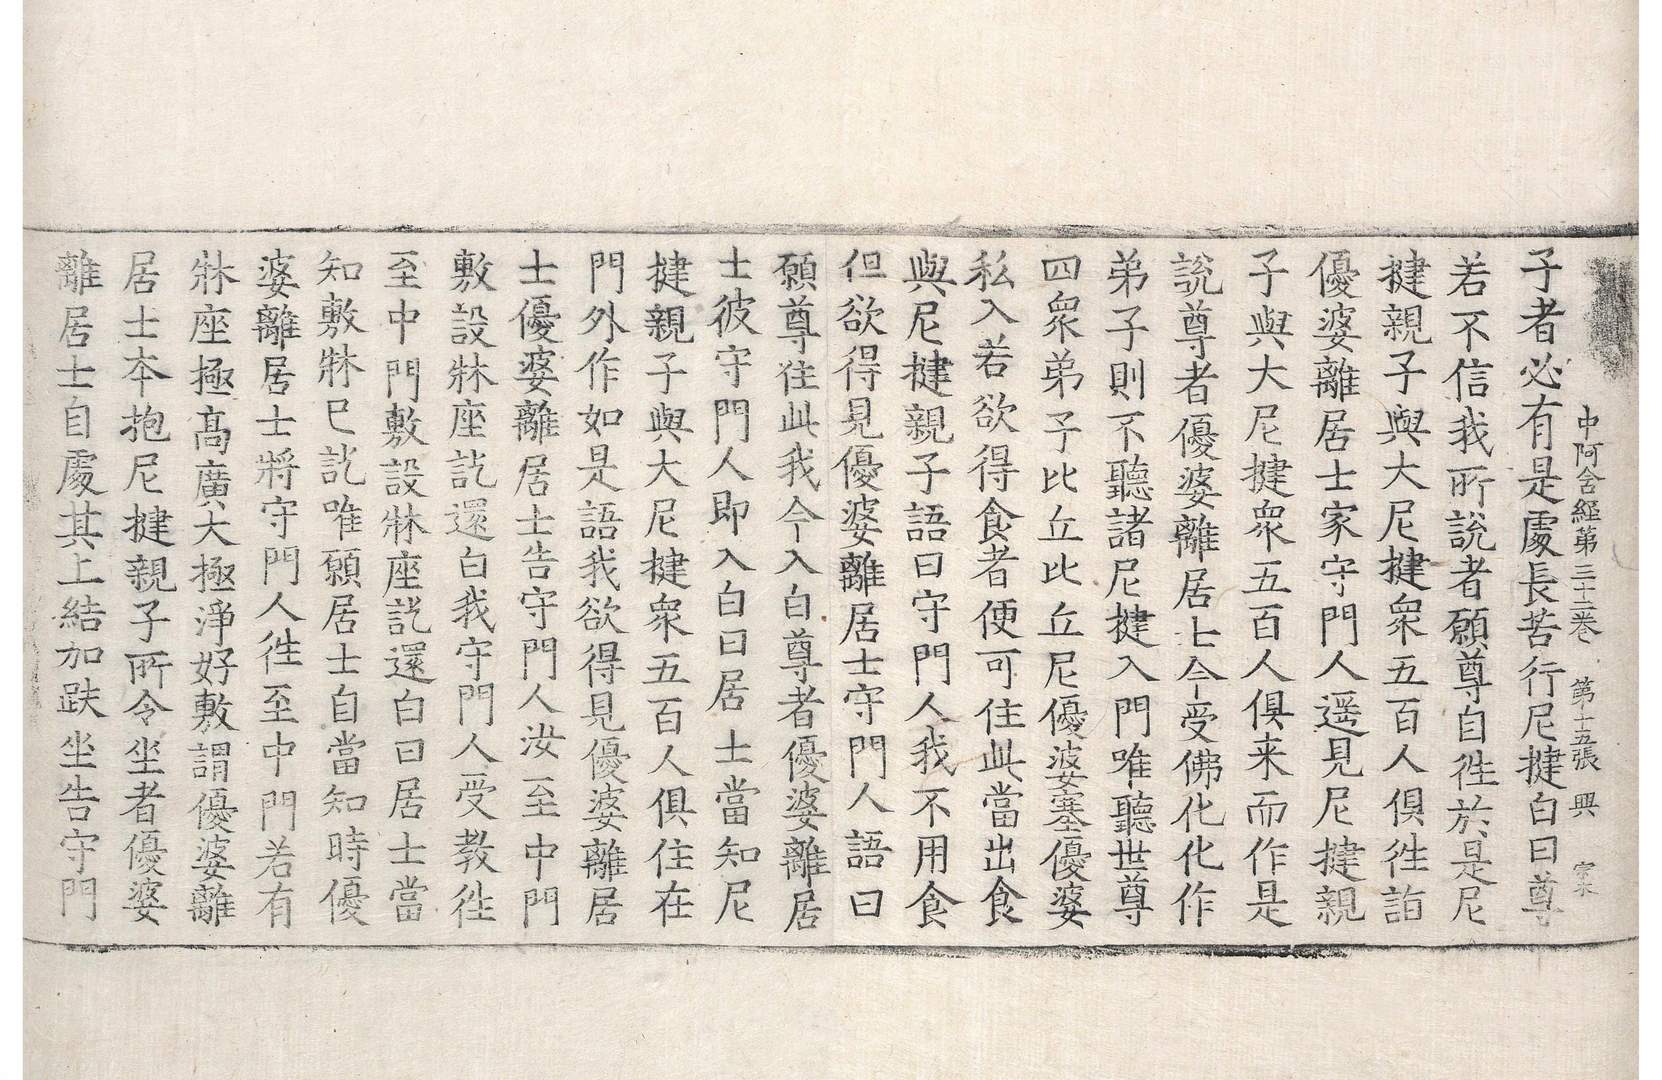 中阿含經第三十二卷 第十五張 興 宗木
子者必有是處長苦行尼揵白曰尊
若不信我所說者願尊自徃於是尼
揵親子與大尼揵衆五百人俱徃詣
優婆離居士家守門人遥見尼揵親
子與大尼揵衆五百人俱来而作是
說尊者優婆離居士今受佛化化作
弟子則不聽諸尼揵入門唯聽世尊
四衆弟子比丘比丘尼優婆塞優婆
私入若欲得食者便可住此當出食
與尼揵親子語曰守門人我不用食
但欲得見優婆離居士守門人語曰
願尊住此我今入白尊者優婆離居
士彼守門人即入白曰居士當知尼
揵親子與大尼揵衆五百人俱住在
門外作如是語我欲得見優婆離居
士優婆離居士告守門人汝至中門
敷設牀座訖還白我守門人受教徃
至中門敷設牀座訖還白曰居士當
知敷牀已訖唯願居士自當知時優
婆離居士將守門人徃至中門若有
牀座極高廣大極淨好敷謂優婆離
居士本抱尼揵親子所令坐者優婆
離居士自處其上結加趺坐告守門